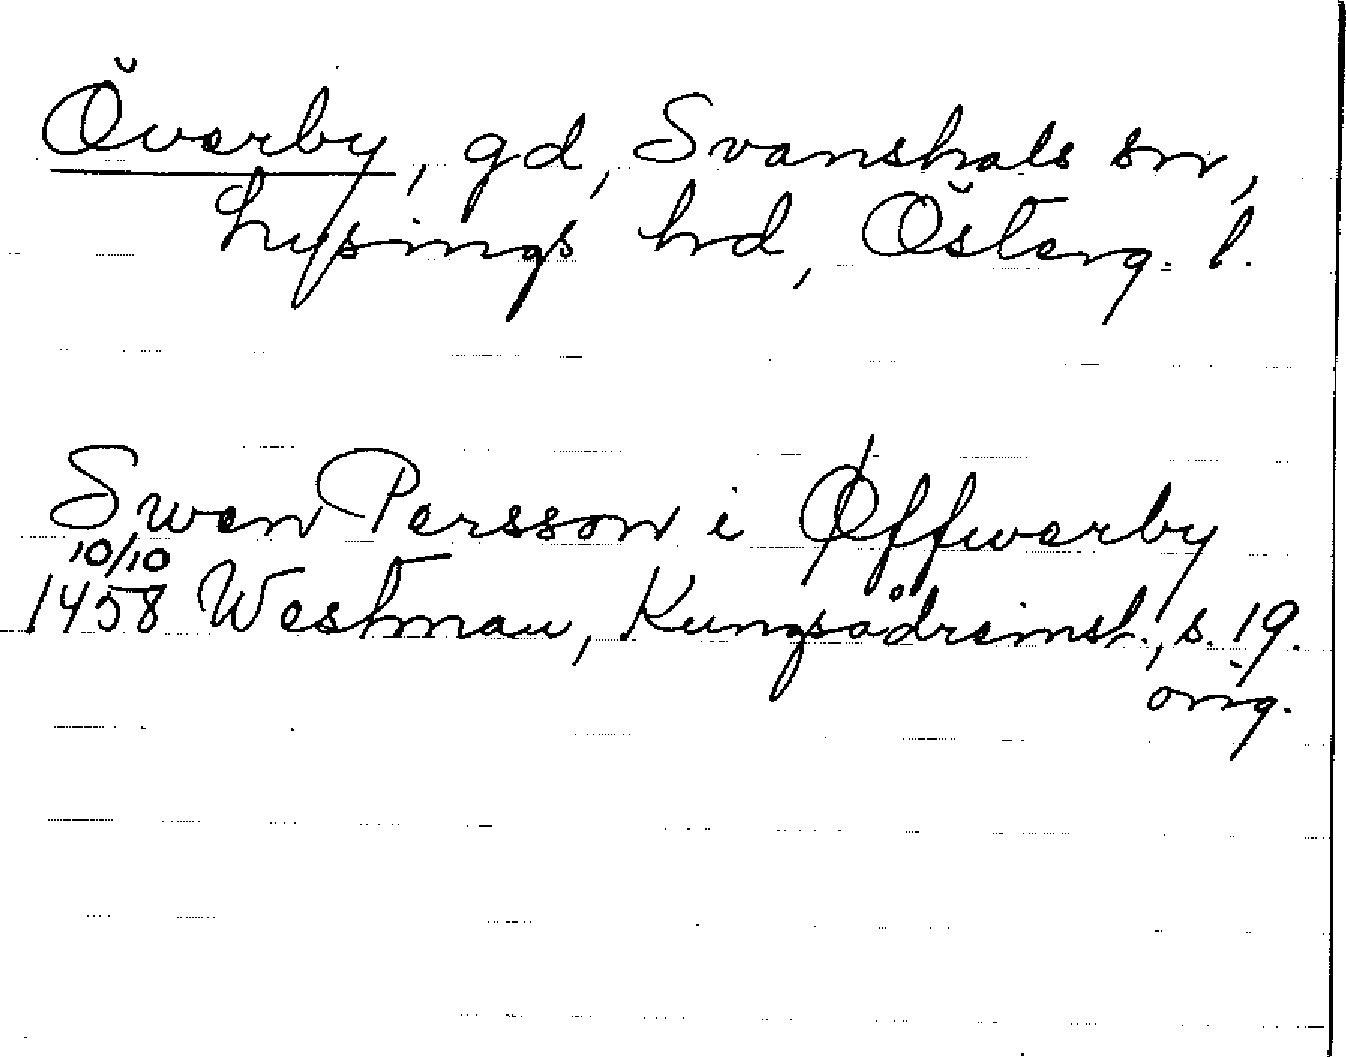 Överby, gd, Svanshals sn,
Lysings hd, Österg. l.
Swen Persson i Øffwerby
10/10
1458 Westman, Kungsådrainst., s. 19.
orig.